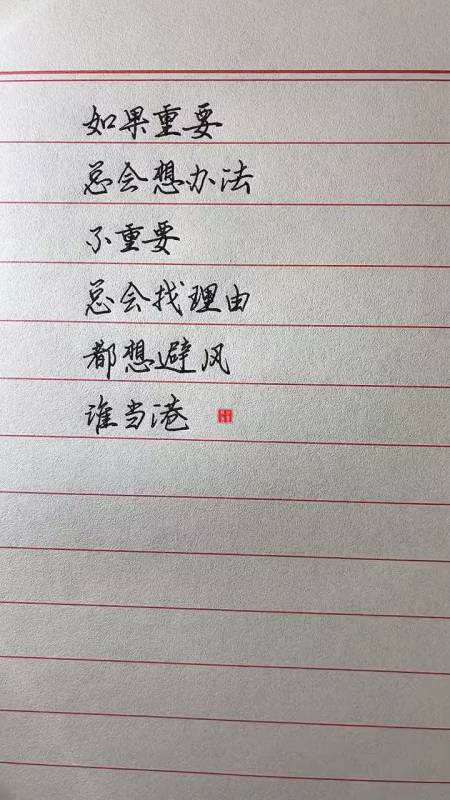 如果重要
总会想办法
不重要
总会找理由
都想避风
谁当港